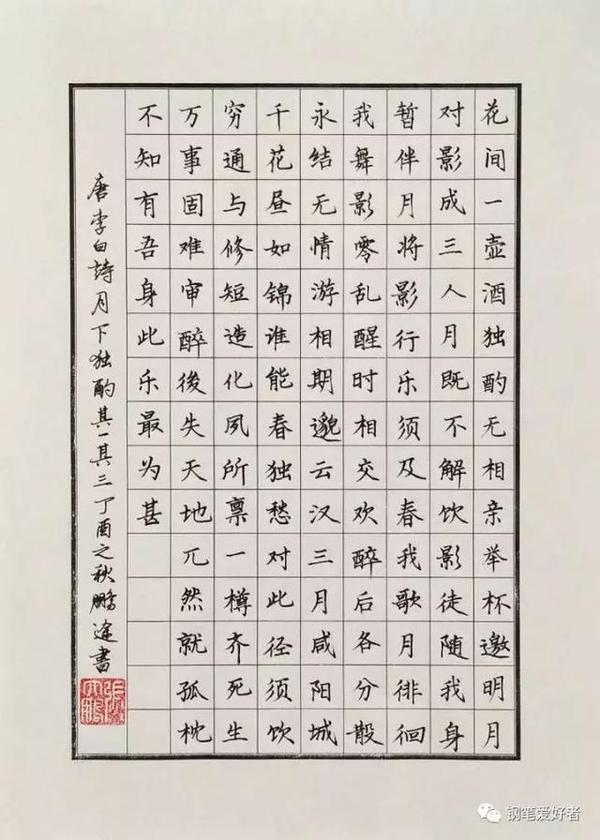 花间一壶酒独酌无相亲举杯邀明月
对影成三人月既不解饮影徒随我身
暂伴月将影行乐须及春我歌月徘徊
我舞影零乱醒时相交欢醉后各分散
永结无情游相期邈云汉三月咸阳城
千花昼如锦谁能春独愁对此径须饮
穷通与修短造化夙所禀一樽齐死生
万事固难审醉後失天地兀然就孤枕
不知有吾身此乐最为甚
唐李白詩月下独酌其一其三丁酉之秋鹏途書
钢笔爱好者